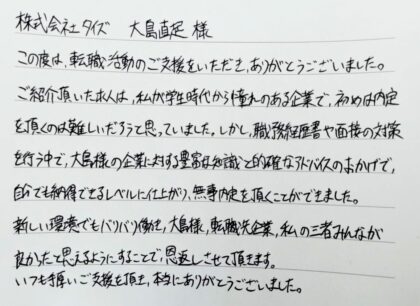 株式会社タイズ 大島直足 様
この度は、転職活動のご支援をいただき、ありがとうございました。
ご紹介頂いた求人は、私が学生時代から憧れのある企業で、初めは内定
を頂くのは難しいだろうと思っていました。しかし、職務経歴書や面接の対策
を行う中で、大島様の企業に対する豊富な知識と的確なアドバイスのおかげで、
自分でも納得できるレベルに仕上がり、無事内定を頂くことができました。
新しい環境でもバリバリ働き、大島様、転職先企業、私の三者みんなが
良かったと思えるようにすることで、恩返しさせて頂きます。
いつも手厚いご支援を頂き、本当にありがとうございました。